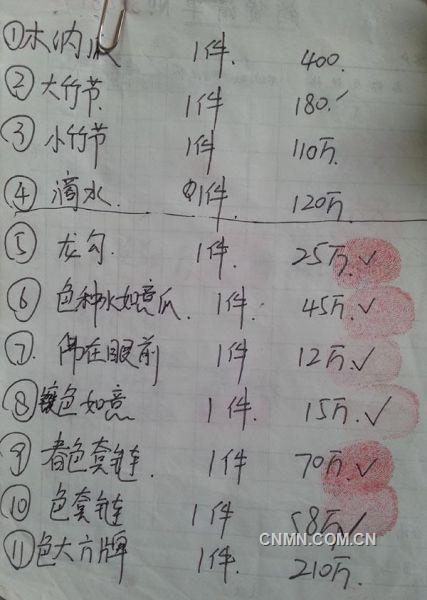 ①木纳瓜 1件. 400.
② 大竹节 1件 180.
③ 小竹节 1件 110万.
④ 滴水. 1件. 120万.
⑤ 龙勾. 1件. 25万.✓
⑥ 色种水如意瓜. 1件. 45万.✓
⑦. 佛在眼前 1件 12万.✓
⑧ 色如意 1件. 15万.✓
⑨ 春色套链. 1件 70万.✓
⑩ 色套链 1件 58万✓
CNMN.COM.CN
⑪色大方牌 1件. 210万.